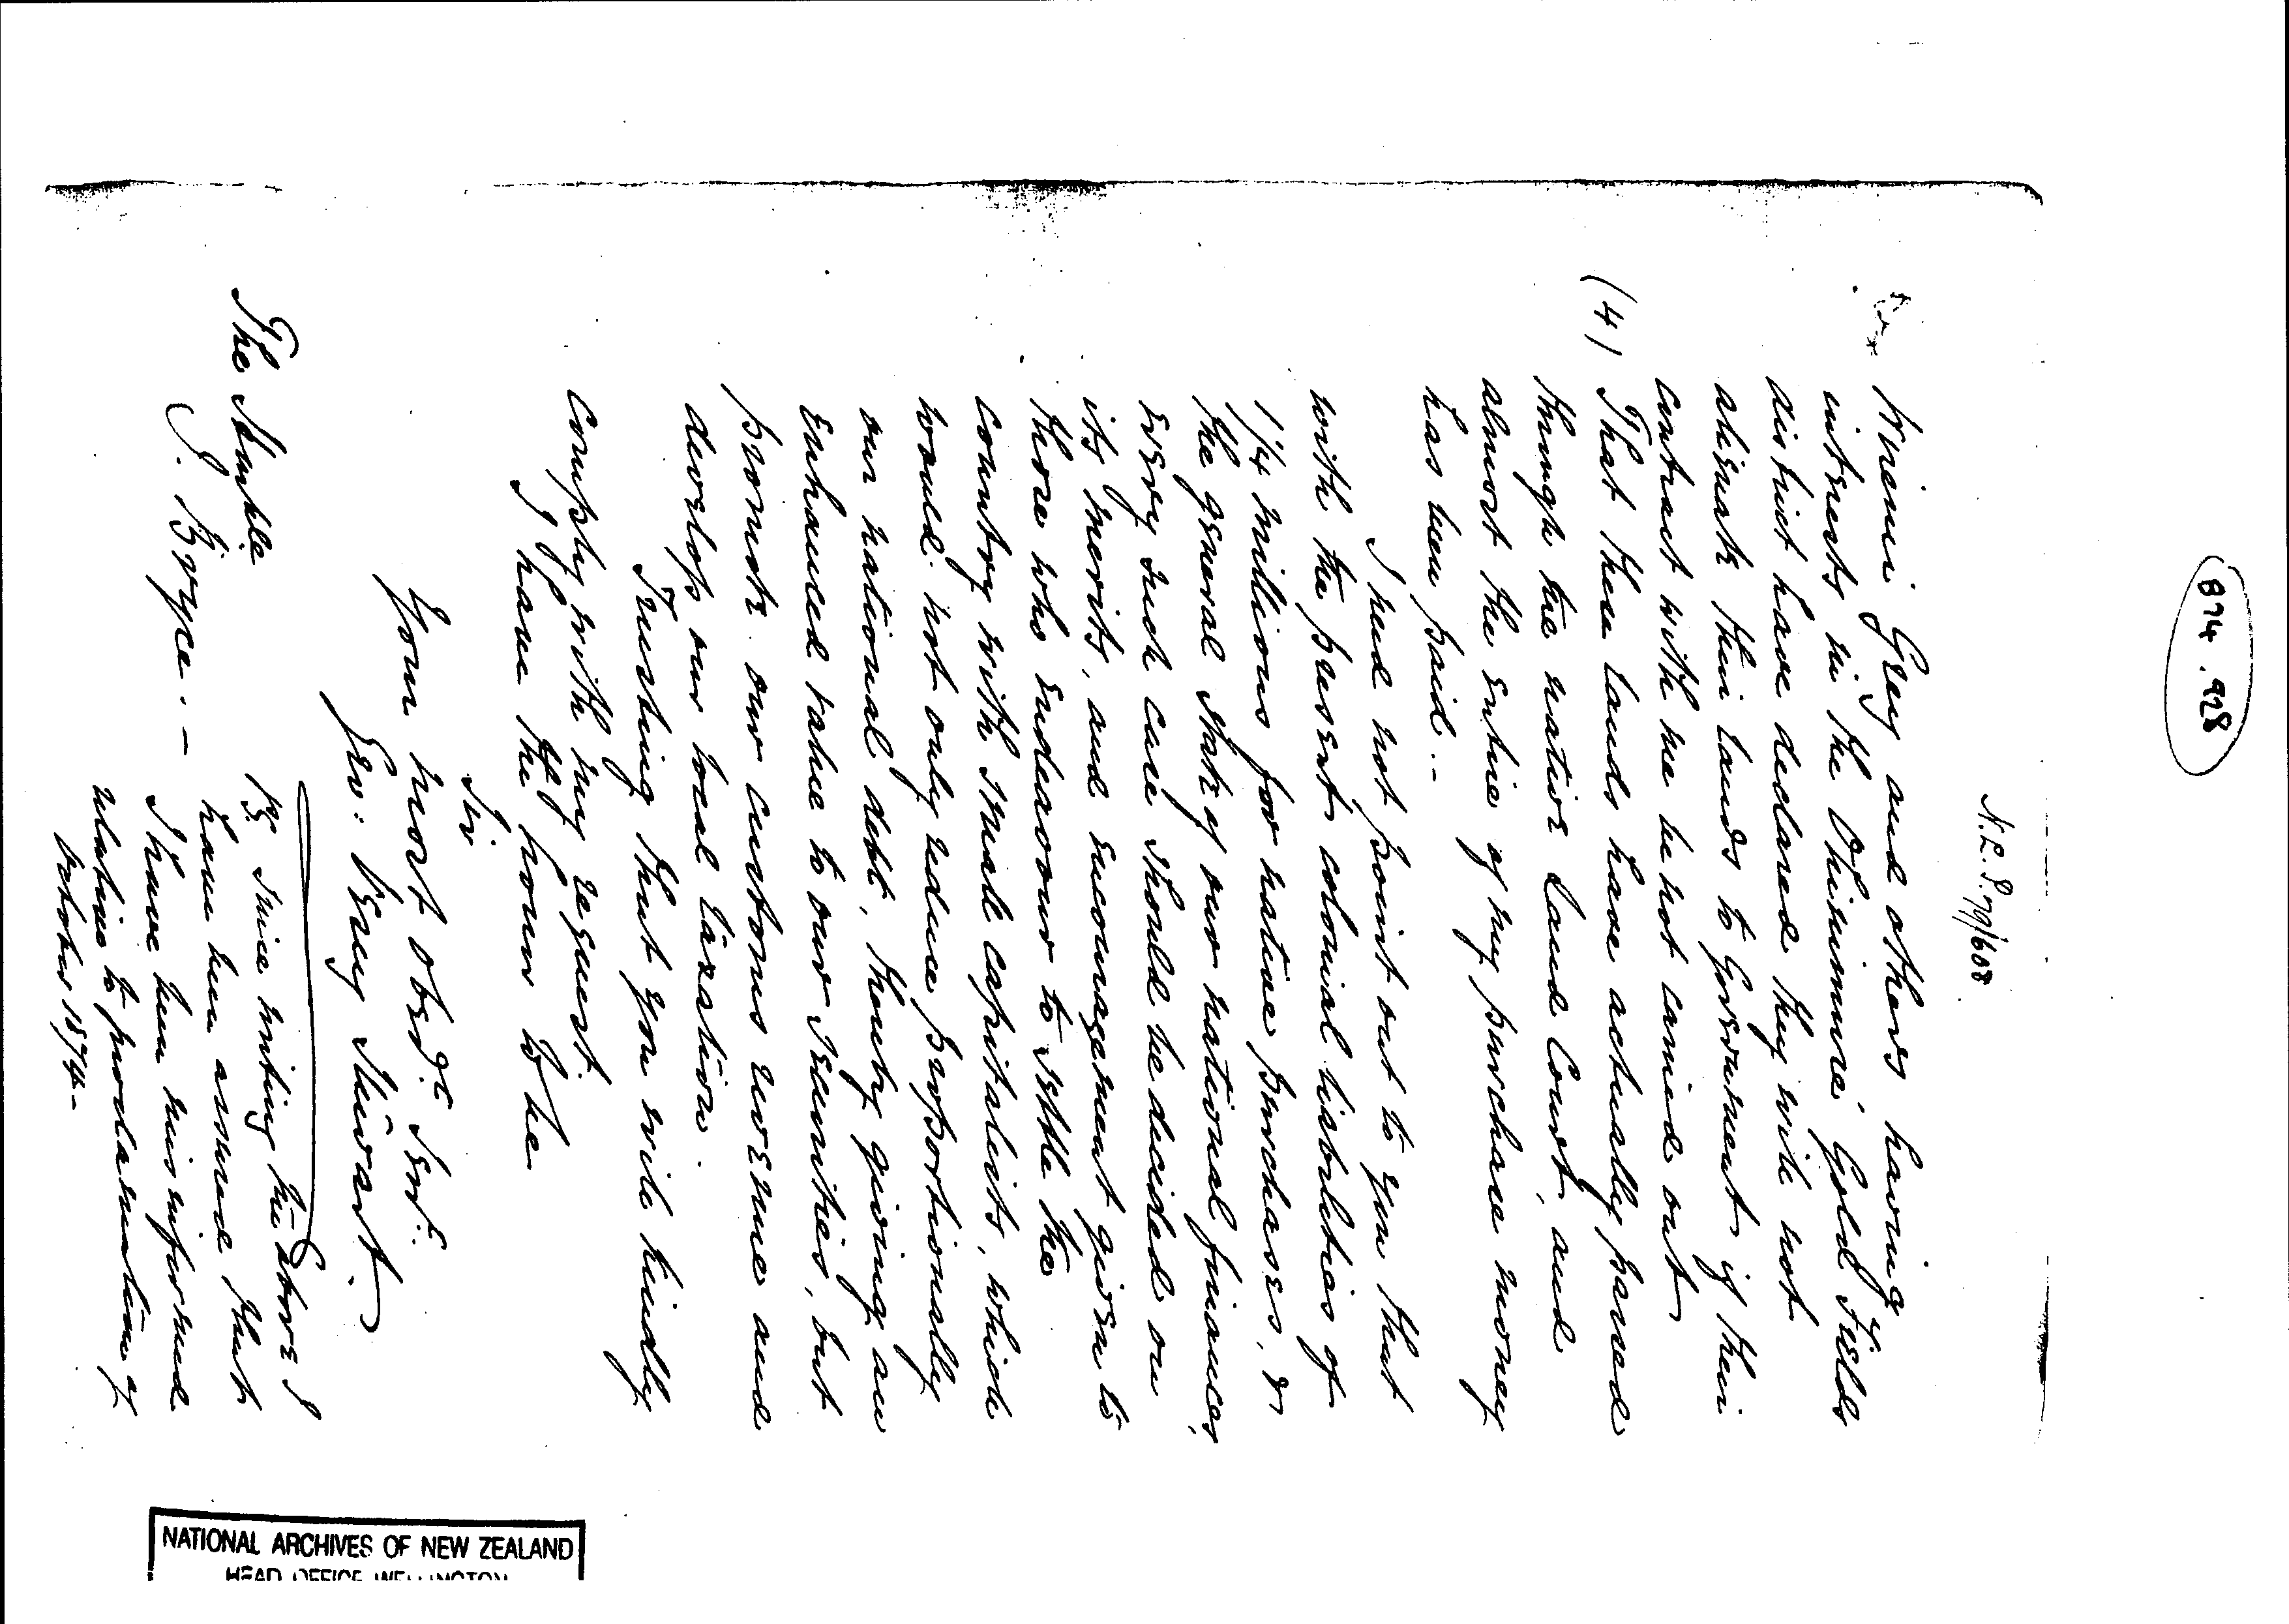 874.928
N.L.P. 79/608
Wiremu Grey and others having
interests in the Ohinimuri Gold Fields
district have declared they will not
alienate their lands to Government if their
contract with me be not carried out
(4) That these lands have actually passed
through the native Land Court, and
almost the entire of my purchase money
has been paid.-
I need not point out to you that
with the present colonial liabilities of
1 1/4 millions for native purchases, &
the general state of our national finances,
every such case should be decided on
its merits, and encouragement given to
those who endeavour to settle the
country with small capitalists, which
would not only reduce proportionally
our national debt, thereby giving an
enhanced value to our securities, but
promote our customs revenue and
develop our local taxation.
Trusting that you will kindly
comply with my request.
I have the honor to be
Sir
Your most obedt. Servt.
Geo: Vesey Stewart.
The Honble
J. Bryce. -
P.S. Since writing the above I
have been assured that
I have been misinformed
relative to proclamation of
October 1874-
NATIONAL ARCHIVES OF NEW ZEALAND
HEAD OFFICE WELLINGTON